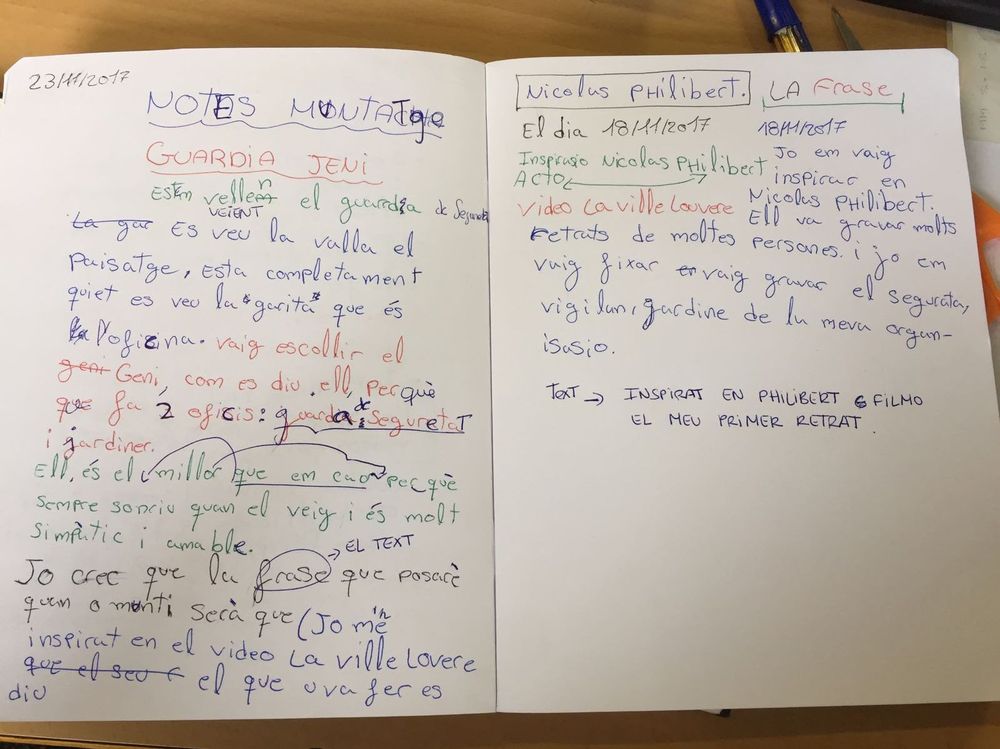 23/11/2017
NOTES MUNTATge
GUARDIA JENI
Estem veient el guardia de Seguretat
La gar Es veu la valla el
paisatge, Esta completament
quiet es veu la "garita" que és
l'oficina. vaig escollir el
geni Geni, com es diu ell, perquè
que fa 2 oficis: guarda de Seguretat
i jardiner.
Ell, és el millor que em cao perquè
sempre sonriu quan el veig i és molt
Simpàtic i amable.
EL TEXT
Jo crec que la frase que posarè
quan o munti Serà que (Jo m'én
inspirat en el video La ville Lovere
que el seu el que uva fer es
diu
Nicolas PHilibert.
El dia 18/11/2017
Inspirasio Nicolas PHilibert
ACTO
video La ville Louvere
LA Frase
18/11/2017
Jo em vaig
inspirar en
Nicolas PHilibert.
Ell va gravar molts
retrats de moltes persones. i jo em
vaig fixar en vaig gravar el segurata,
vigilan, jardine de la meva organ-
isasio.
TexT → INSPIRAT EN PHILIBERT FILMO
EL MEU PRIMER RETRAT.